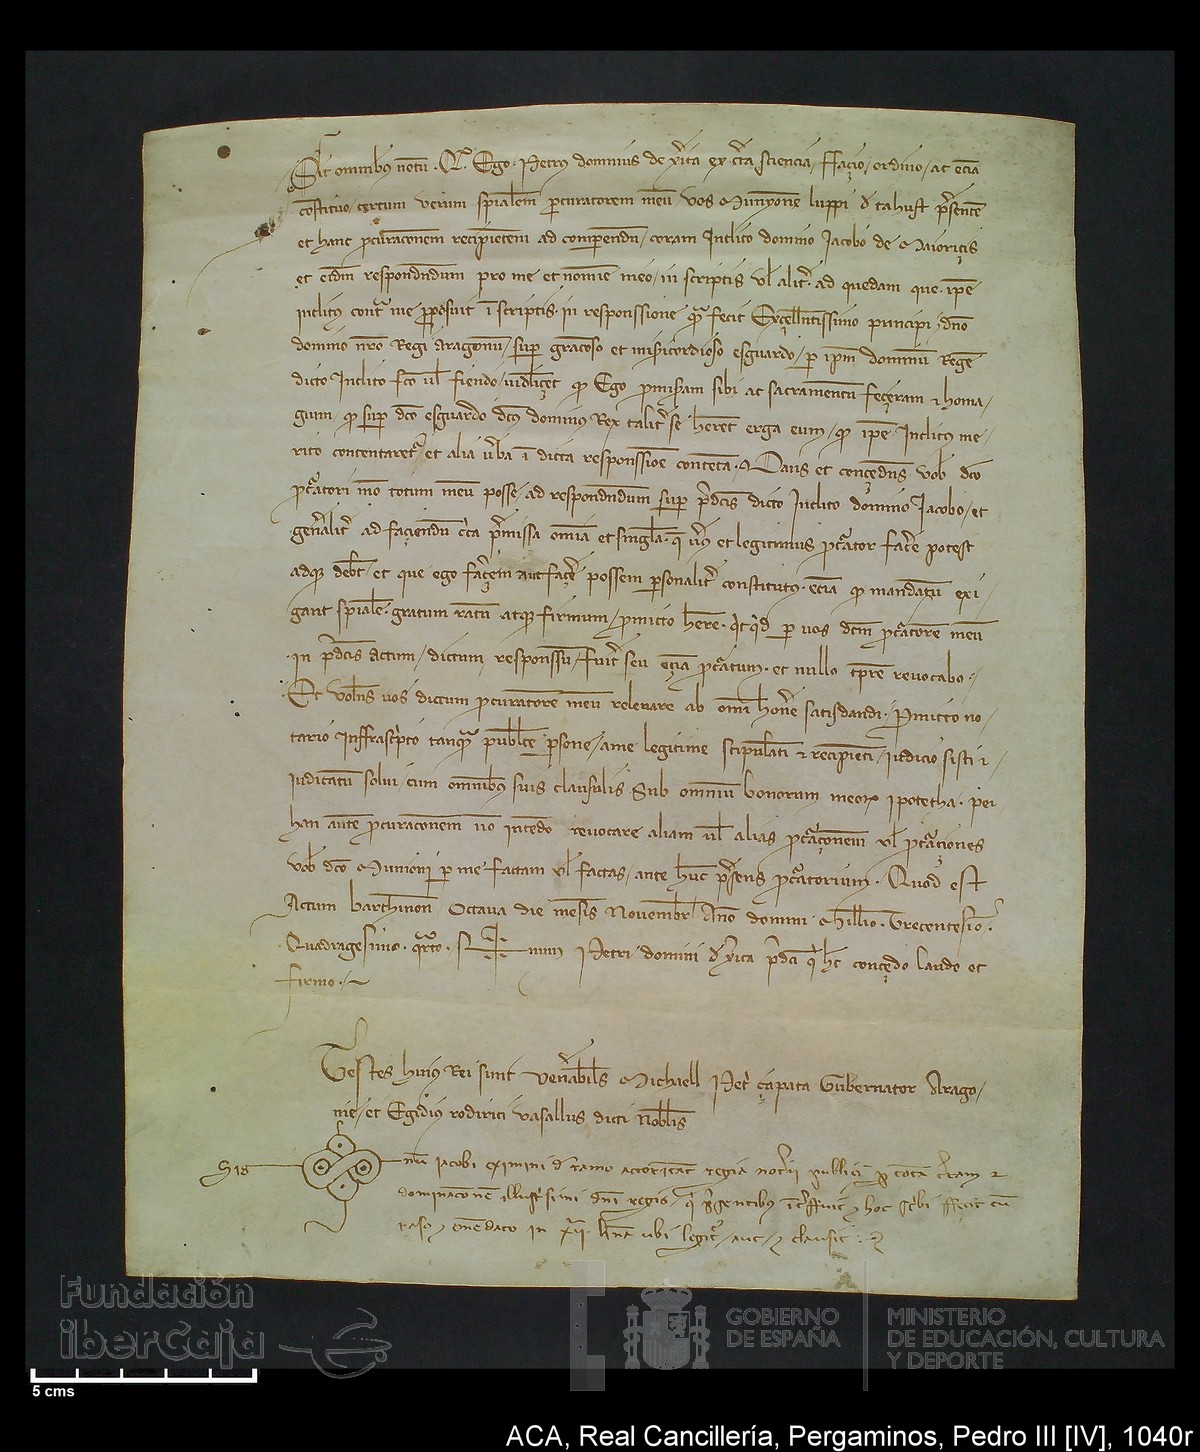 Sit omnibus notu. Q. Ego Petrus dominus de xerica ex certa sciencia, ffacio, ordino, ac etia
costituo, certum verum spialem pcuratorem meu, vos Munyone luppi d tahust psente
et hanc pcuraconem recipietem ad comparendu, coram Inclito domino Jacobo de Maioricis
et eidm respondndum pro me et nomine meo, in scriptis vl alit, ad quedam que ipe
inclitus contra me pposuit i scriptis in responssione qua fecit Excellentissimo principi, dno
domino nro Regi Aragonu, sup gracoso et misicordioso esguardo, p ipm dominu Rege
dicto Inclito fco vl fiendo, vidlicet q Ego promisam sibi ac sacramentu feceram et homa,
gium, q sup dco esguardo dcus dominus Rex talit se heret erga eum, q ipe Inclitus me,
rito contentaret et alia vba i dicta responssioe contenta. Dans et concedns vob dco
pcatori mo totum meu posse, ad respondndum sup pdcis dicto Inclito domino Jacobo, et
genalit ad faciendu cca pmissa omia et singla, q vus et legitimus pcator face potest
adq debt, et que ego facem aut face possem psonalit constitutus, etia q mandatu exi,
gant spiale, gratum ratu atq firmum, pmicto here, qcqd p vos dcm pcatore meu
in pdcis actum, dictum responssu, fuit seu etia pcatum, et nullo tpre revocabo.
Et volns vos dictum pcuratore meu relevare ab omi honere satisdandi, Pmicto no,
tario Inffrascipto tanqua publce psone, a me legitime stipulati et recipieti, judicio sisti et
iudicatu solvi, cum omnibus suis clausulis Sub omniu bonorum meorum ipotecha. per
han aute pcuraconem no intedo revocare aliam vl alias pcaconem vl pcaciones
vob dco Munioni p me factam vl factas, ante huc psens pcatorium. Quod est
Actum barchinon Octava die mesis Novembr Ano domini Millio Trecentesio
Quadragesimo qrto. Si+num Petri domini d xerica pdci q hc concedo laudo et
firmo.
Testes huius Rei sunt venabils Michaell Petri çapata Gubernator Arago,
nie, et Egidius rodirici vasallus dicti Nobilis
Sig num iacobi eximini d ramo auctoritate regia notarii publici p totam terram et
dominacone illustrissimi dni regis, q psentibus interffuit et hoc scibi ffecit cu
raso et emedato in xvii linea ubi legitur, aut, et clausit
Fundación
iberCaja
GOBIERNO
DE ESPAÑA
MINISTERIO
DE EDUCACIÓN, CULTURA
Y DEPORTE
5 cms
ACA, Real Cancillería, Pergaminos, Pedro III [IV], 1040r